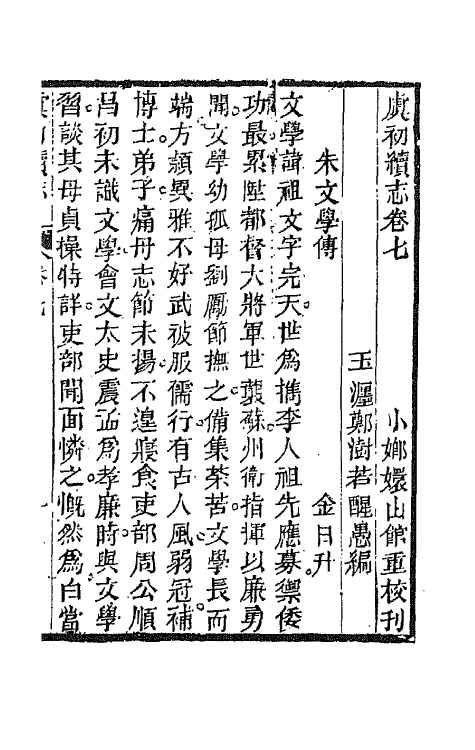 虞初續志卷七
小嫏嬛山館重校刋
玉溼鄭澍若醒愚編
朱文學傳
金日升
文學諱祖文字完天世爲携李人祖先應募禦倭
功最累陞都督大將軍世襲蘇州衛指揮以廉勇
聞文學幼孤母劉勵節撫之備集荼苦文學長而
端方頴異雅不好武被服儒行有古人風弱冠補
博士弟子痛母志節未揚不遑寢食吏部周公順
昌初未識文學會文太史震孟爲孝廉時與文學
習談其母貞操特詳吏部聞而憐之慨然爲白當
卷七